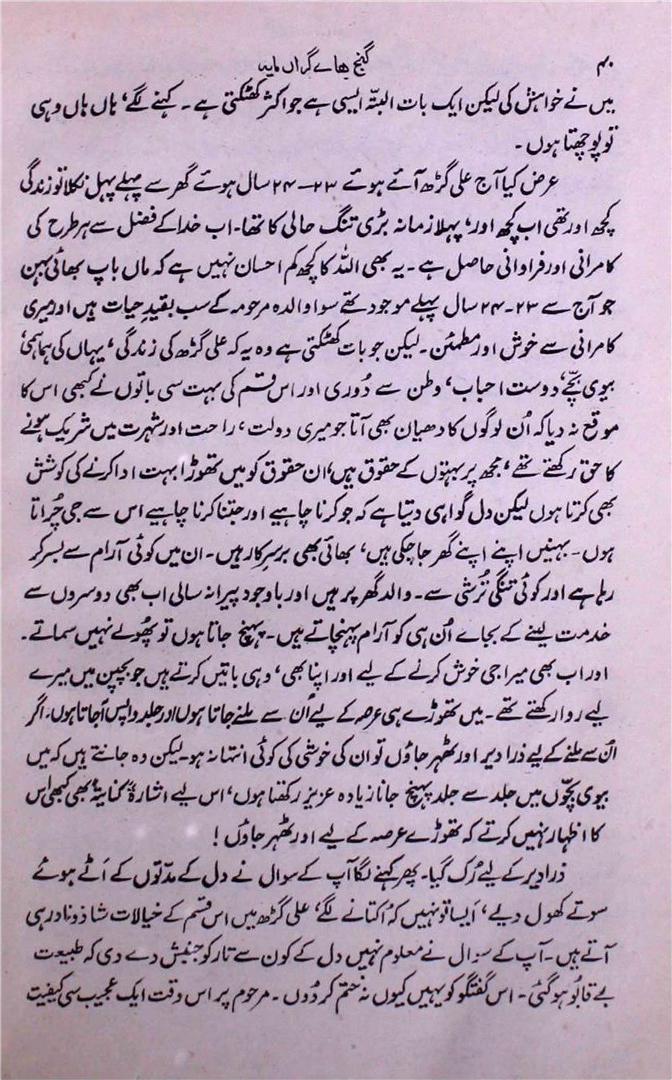 ۴۰
گنج ہاے گراں مایہ
میں نے خواہش کی لیکن ایک بات البتہ ایسی ہے جو اکثر کھٹکتی ہے۔ کہنے لگے، ہاں ہاں وہی
تو پوچھتا ہوں۔
عرض کیا آج علی گڑھ آئے ہوئے ۲۳-۲۴ سال ہوئے گھر سے پہلے پہل نکلا تو زندگی
کچھ اور تھی اب کچھ اور، پہلا زمانہ بڑی تنگ حالی کا تھا۔ اب خدا کے فضل سے ہر طرح کی
کامرانی اور فراوانی حاصل ہے۔ یہ بھی اللہ کا کچھ کم احسان نہیں ہے کہ ماں باپ بھائی بہن
جو آج سے ۲۳-۲۴ سال پہلے موجود تھے سوا والدہ مرحومہ کے سب بقیدِ حیات ہیں اور میری
کامرانی سے خوش اور مطمئن۔ لیکن جو بات کھٹکتی ہے وہ یہ کہ علی گڑھ کی زندگی، یہاں کی ہماہمی،
بیوی بچّے، دوست احباب، وطن سے دُوری اور اس قسم کی بہت سی باتوں نے کبھی اس کا
موقع نہ دیا کہ اُن لوگوں کا دھیان بھی آتا جو میری دولت، راحت اور شہرت میں شریک ہونے
کا حق رکھتے تھے، مجھ پر بہتوں کے حقوق ہیں، ان حقوق کو میں تھوڑا بہت ادا کرنے کی کوشش
بھی کرتا ہوں لیکن دل گواہی دیتا ہے کہ جو کرنا چاہیے اور جتنا کرنا چاہیے اس سے جی چُراتا
ہوں۔ بہنیں اپنے اپنے گھر جا چکی ہیں، بھائی بھی برسرِکار ہیں۔ ان میں کوئی آرام سے بسر کر
رہا ہے اور کوئی تنگی تُرشی سے۔ والد گھر پر ہیں اور باوجود پیرانہ سالی اب بھی دوسروں سے
خدمت لینے کے بجاے اُن ہی کو آرام پہنچاتے ہیں۔ پہنچ جاتا ہوں تو پھُولے نہیں سماتے۔
اور اب بھی میرا جی خوش کرنے کے لیے اور اپنا بھی، وہی باتیں کرتے ہیں جو بچپن میں میرے
لیے روا رکھتے تھے۔ میں تھوڑے ہی عرصہ کے لیے ان سے ملنے جاتا ہوں اور جلد واپس آجاتا ہوں۔ اگر
اُن سے ملنے کے لیے ذرا دیر اور ٹھہر جاؤں تو ان کی خوشی کی کوئی انتہا نہ ہو۔ لیکن وہ جانتے ہیں کہ میں
بیوی بچّوں میں جلد سے جلد پہنچ جانا زیادہ عزیز رکھتا ہوں، اس لیے اشارۃً کنایتہً بھی کبھی اس
کا اظہار نہیں کرتے کہ تھوڑے عرصہ کے لیے اور ٹھہر جاؤں!
ذرا دیر کے لیے رُک گیا۔ پھر کہنے لگا آپ کے سوال نے دل کے مدّتوں کے اَٹے ہوئے
سوتے کھول دیے، اَیسا تو نہیں کہ اُکتانے لگے، علی گڑھ میں اس قسم کے خیالات شاذ و نادر ہی
آتے ہیں۔ آپ کے سوال نے معلوم نہیں دل کے کون سے تار کو جنبش دے دی کہ طبیعت
بے قابُو ہوگئی۔ اس گفتگو کو یہیں کیوں نہ ختم کر دُوں۔ مرحوم پر اس وقت ایک عجیب سی کیفیت